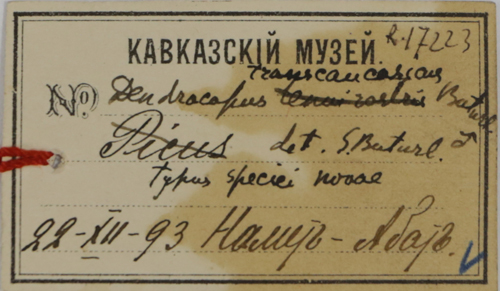 R.17223
КАВКАЗСКІЙ МУЗЕЙ.
transcaucasicus
№ Dendrocopus tenuirostris Buturl
Picus det. S. Buturl. ♂
typus speciei novae
22-XII-93 Намеръ-Абадъ.